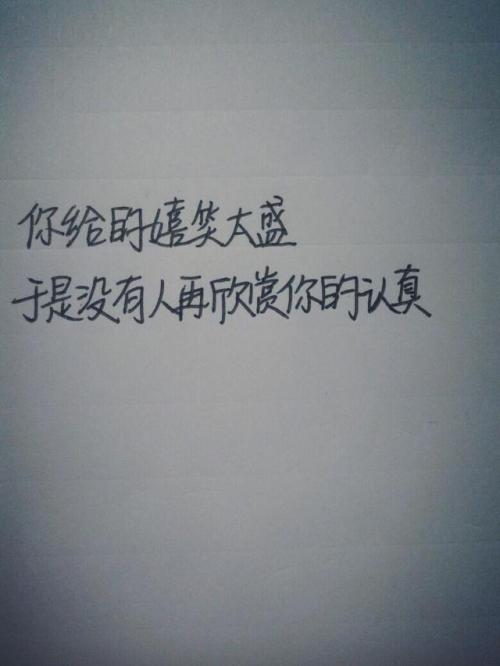 你给的嬉笑太盛
于是没有人再欣赏你的认真